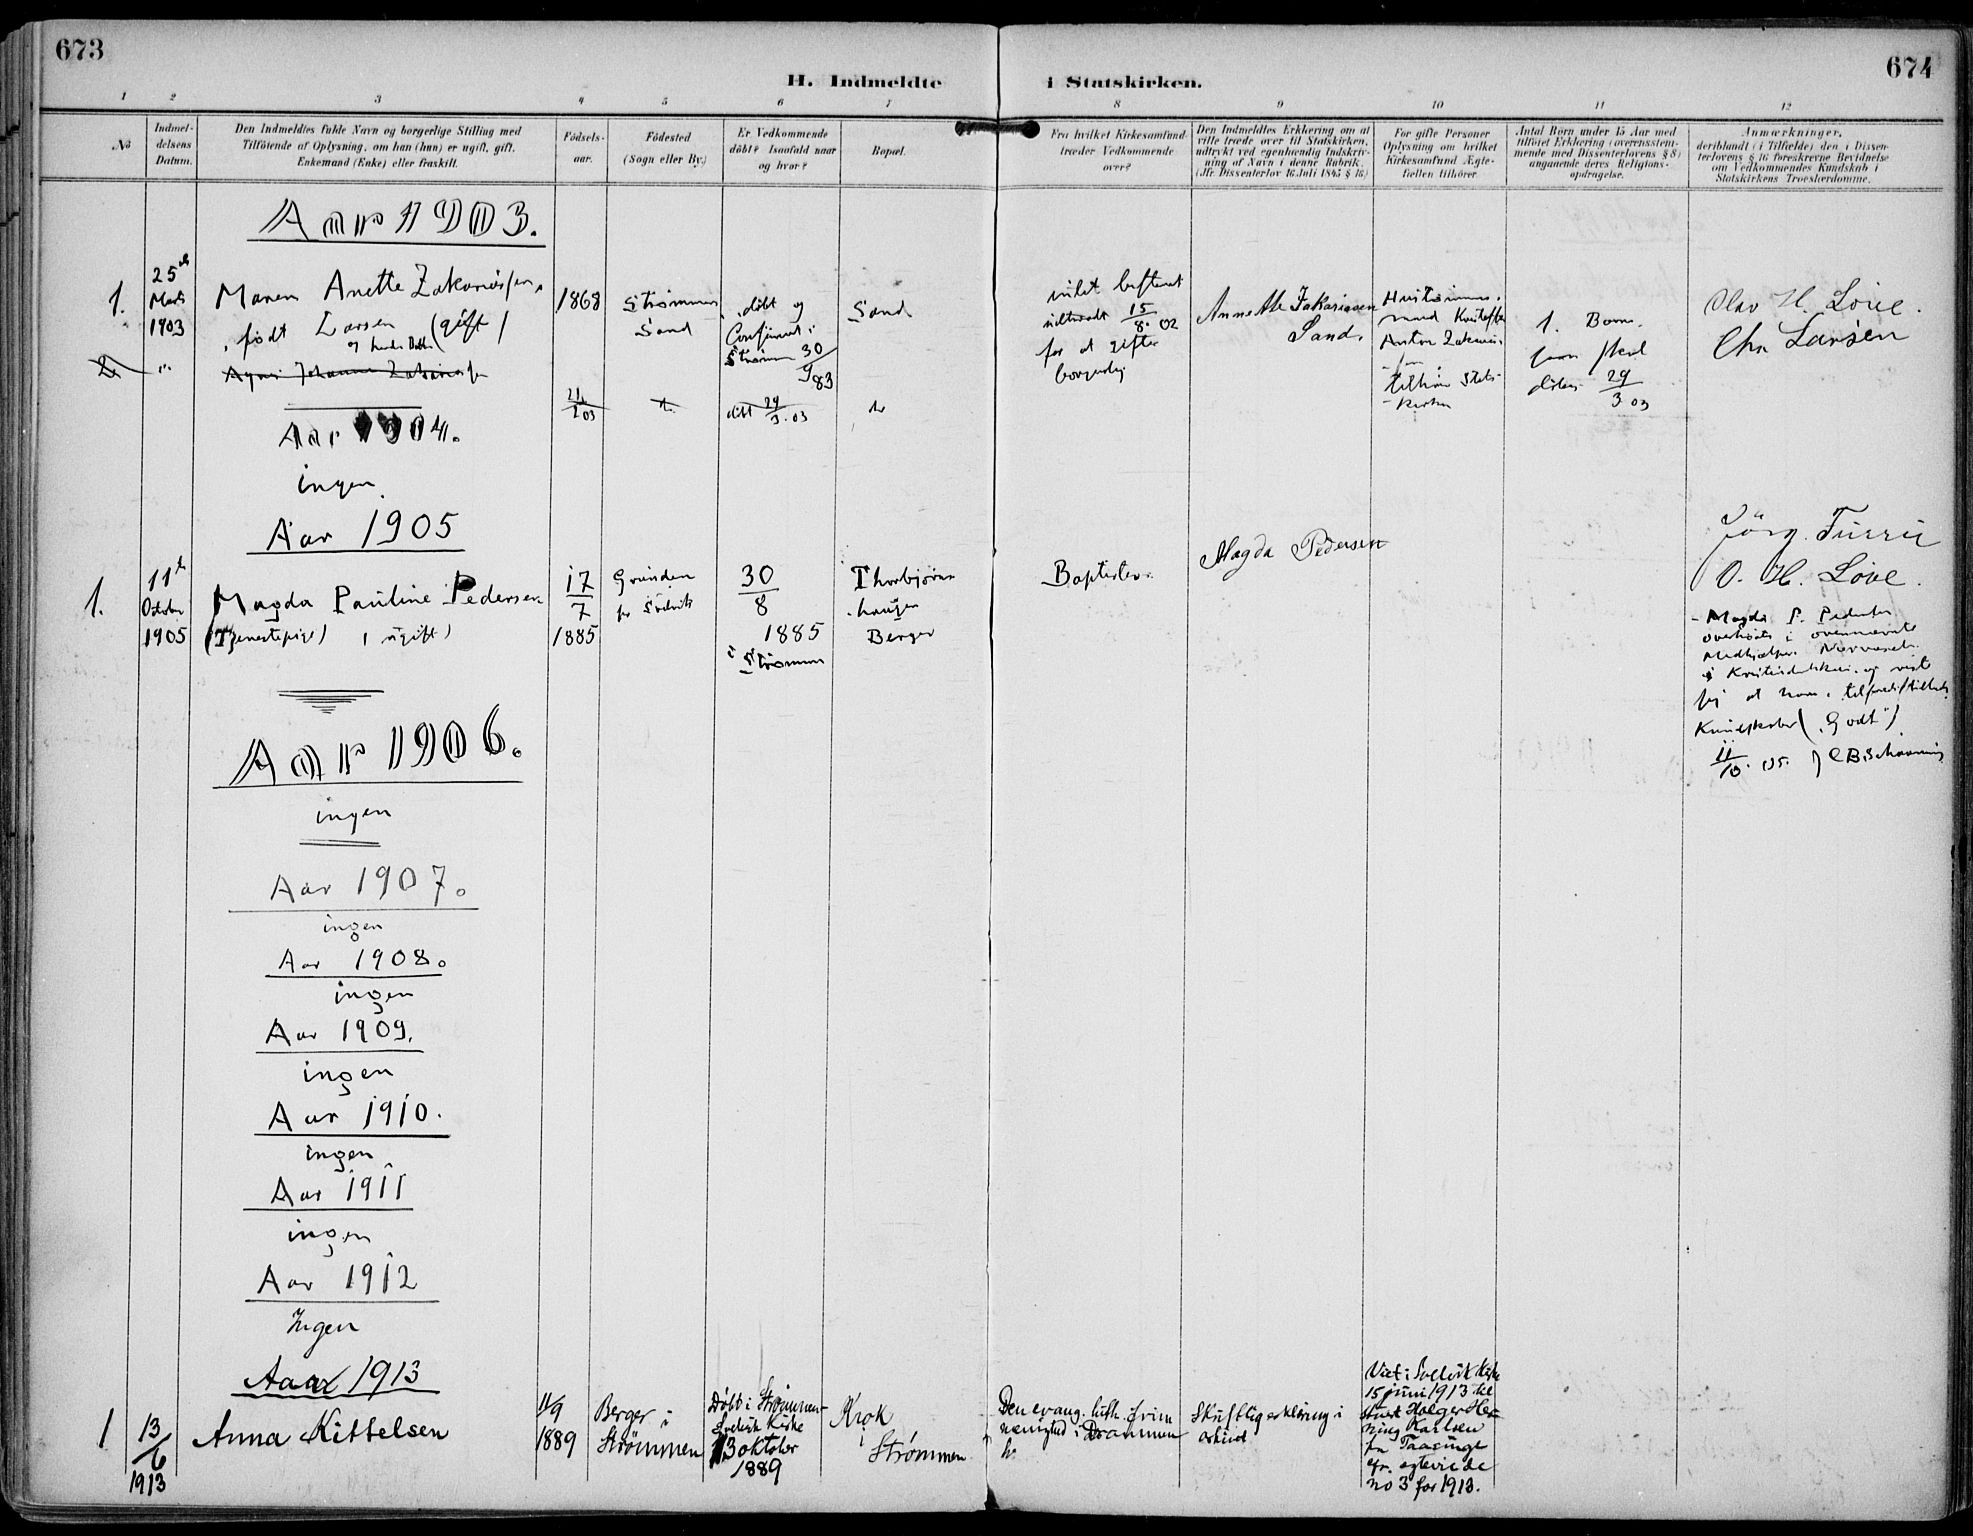 673
674
H. Indmeldte i Statskirken.
1 2 3 4 5 6 7 8 9 10 11 12
No
Indmel-
delsens
Datum.
Den Indmeldtes fulde Navn og borgerlige Stilling med
Tilføiende af Oplysning, om han (hun) er ugift, gift,
Enkemand (Enke) eller fraskilt.
Fødsels-
aar.
Fødested
(Sogn eller By.)
Er Vedkommende
døbt? Isaafald naar
og hvor?
Bopæl.
Fra hvilket Kirkesamfund
træder Vedkommende
over?
Den Indmeldtes Erklæring om at
ville træde over til Statskirken,
udtrykt ved egenhændig Indskriv-
ning af Navn i denne Rubrik.
(Jfr. Dissenterlov 16 Juli 1845 § 16)
For gifte Personer
Oplysning om hvilket
Kirkesamfund Ægte-
fællen tilhører.
Antal Børn under 15 Aar med
tilføiet Erklæring (overensstem-
mende med Dissenterlovens § 8)
angaaende deres Religions-
opdragelse.
Anmærkninger,
deriblandt (i Tilfælde) den i Dissen-
terlovens § 16 foreskrevne Bevidnelse
om Vedkommendes Kundskab i
Statskirkens Troesherdomme.
Aar 1903.
1.
25de
Marts
1903
Maren Anette Zakariassen,
født Larsen (gift)
og hendes
1868
Strømmen
Sand
døbt og
Confirmeret i
Strømm 30/9 83
Sand
intet bestemt
udtraadt 15/8. 02
for at gifte
borgerlig
Annette Zakariasen
Sand.
Anton Zakarias-
sen
tilhører Stats-
kirken
1. Barn
som skal
døbes 29/3 03
Olav H. Løve.
Chr Larsen
2. "
Agnes Johanne Zakariassen
døbt 29/3. 03
Aar 1904.
ingen
Aar 1905
1.
11te
October
1905
Magda Pauline Pedersen
(Tjenestepige) ugift)
17/7
1885
Grunden
for Svelvik
30/8
1885
i Strømmen
Thorbjørns
haugen
Berger
Baptister
Magda Pedersen
O. H. Løve.
Magda P. Pedersen
overhørt i ovennævnte
Medhjælper Nærværelse
i Kristendommen og viste
sig at have tilfredsstillende
Kundskaber ("Godt")
11/10. 05.
Aar 1906.
ingen
Aar 1907.
ingen
Aar 1908.
ingen
Aar 1909.
ingen
Aar 1910.
ingen
Aar 1911
ingen
Aar 1912
Ingen
Aar 1913
1
13/6
1913
Anna Kittelsen
11/9
1889
Berger i
Strømmen
Døbt i Strømmen
Svelvik Kirke
13 oktober
1889
Krok
i
Strømmen
Den evang. luth. frim
menighed i Drammen
Skriftlig erklæring i
arkivet
Viet i Svelvik Kirke
15 juni 1913 til
Holger Hen-
ning Karlsen
fra Taasinge
cfr. egteviede
no 3 for 1913.